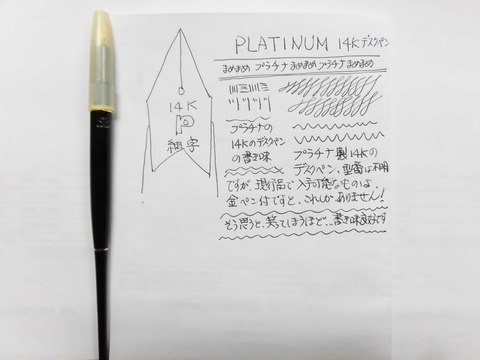 PLATINUM 14Kデスクペン
まめまめ プラチナ まめまめ プラチナ まめまめ
14K
P
細字
プラチナの
14Kのデスクペン
の書き味
プラチナ製14Kの
デスクペン、型番は不明
ですが、現行品で入手可能なものは、
金ペン付ですと、これしかありません!
そう思うと、笑ってしまうほど…書き味良好です